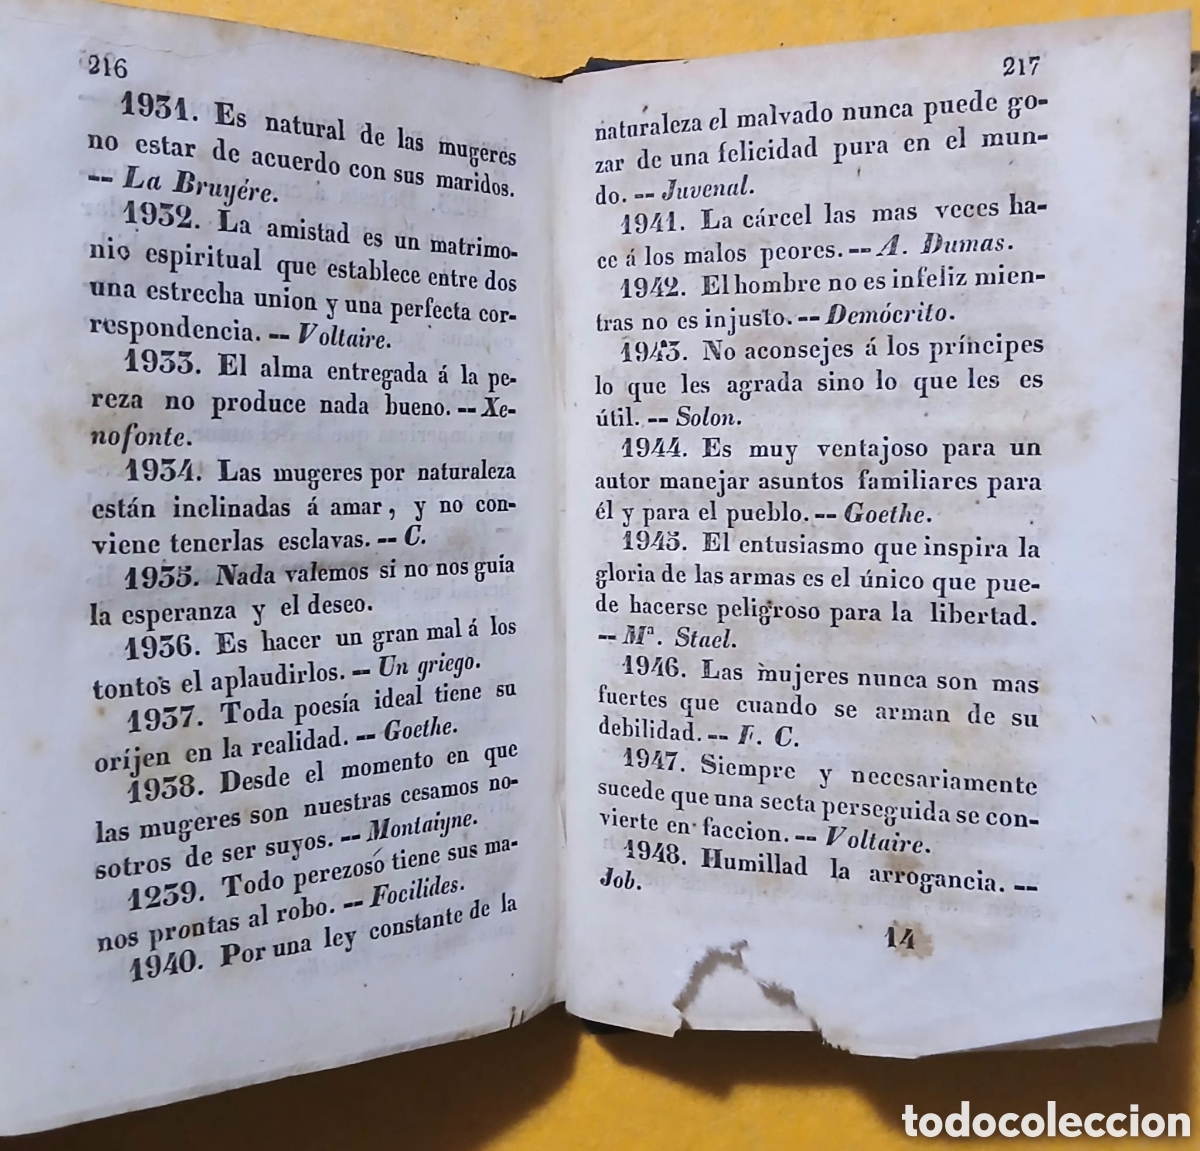 216
1931. Es natural de las mugeres
no estar de acuerdo con sus maridos.
-- La Bruyére.
1932. La amistad es un matrimo-
nio espiritual que establece entre dos
una estrecha union y una perfecta cor-
respondencia. -- Voltaire.
1933. El alma entregada á la pe-
reza no produce nada bueno. -- Xe-
nofonte.
1934. Las mugeres por naturaleza
están inclinadas á amar, y no con-
viene tenerlas esclavas. -- C.
1935. Nada valemos si no nos guia
la esperanza y el deseo.
1936. Es hacer un gran mal á los
tontos el aplaudirlos. -- Un griego.
1937. Toda poesía ideal tiene su
oríjen en la realidad. -- Goethe.
1938. Desde el momento en que
las mugeres son nuestras cesamos no-
sotros de ser suyos. -- Montaiyne.
1239. Todo perezoso tiene sus ma-
nos prontas al robo. -- Focilides.
1940. Por una ley constante de la
217
naturaleza el malvado nunca puede go-
zar de una felicidad pura en el mun-
do. -- Juvenal.
1941. La cárcel las mas veces ha-
ce á los malos peores. -- A. Dumas.
1942. El hombre no es infeliz mien-
tras no es injusto. -- Demócrito.
1943. No aconsejes á los príncipes
lo que les agrada sino lo que les es
útil. -- Solon.
1944. Es muy ventajoso para un
autor manejar asuntos familiares para
él y para el pueblo. -- Goethe.
1945. El entusiasmo que inspira la
gloria de las armas es el único que pue-
de hacerse peligroso para la libertad.
-- Mª. Stael.
1946. Las mujeres nunca son mas
fuertes que cuando se arman de su
debilidad. -- F. C.
1947. Siempre y necesariamente
sucede que una secta perseguida se con-
vierte en faccion. -- Voltaire.
1948. Humillad la arrogancia. --
Job.
14
todocoleccion